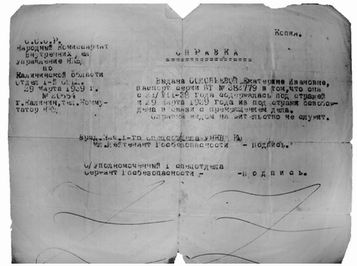 Копия.
С.С.С.Р.
Народный Комиссариат
Внутренних дел
Управление НКВД
по
Калининской области
Отдел 1-й спец.
29 марта 1939 г.
№ 20554
г. Калинин, тел. Комму-
татор НКВД
СПРАВКА
Выдана Екатерине Ивановне,
паспорт серии № 382779 в том, что она
с 1938 года содержалась под стражей
и 29 марта 1939 года из под стражи освобож-
дена в связи с прекращением дела.
Справка видом на жительство не служит.
Врид. Нач. 1-го спецотдела УНКВД КО
мл. лейтенант Госбезопасности - подпись.
О/уполномоченный 1 спецотдела
Сержант Госбезопасности - подпись.